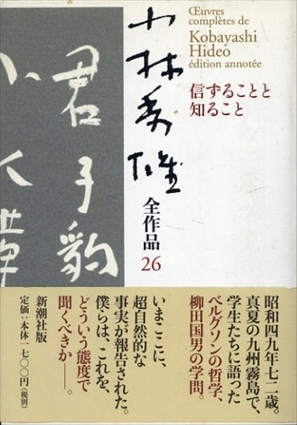 Œuvres
complètes de
Kobayashi
Hideo
édition annotée
小林秀雄
全作品
26
信ずることと
知ること
君子豹
小人革
昭和四九年七二歳。
真夏の九州霧島で、
学生たちに語った
ベルグソンの哲学、
柳田国男の学問。
いまここに、
超自然的な
事実が報告された。
僕らは、これを、
どういう態度で
聞くべきか――。
新潮社版
定価：本体一七〇〇円（税別）